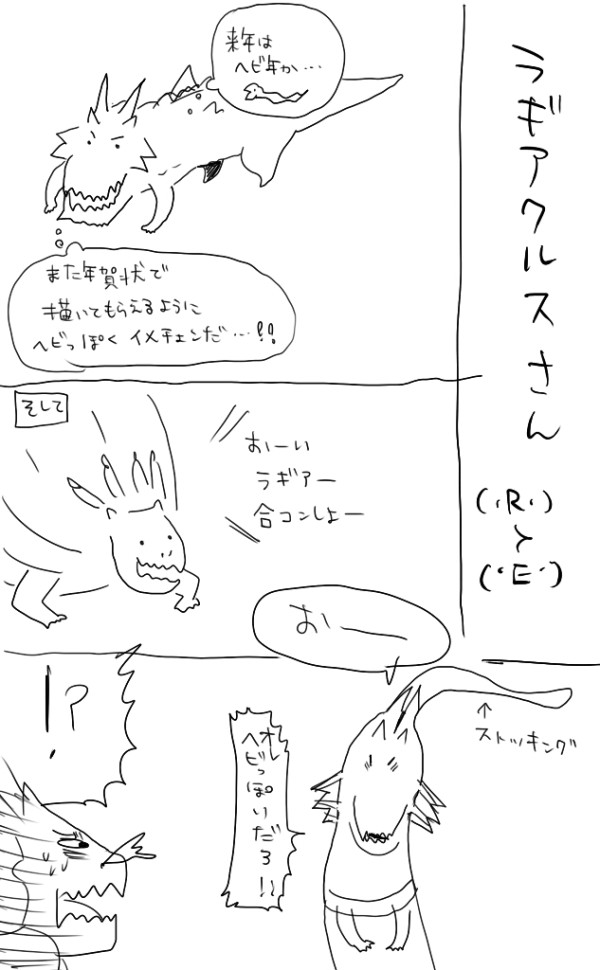 ラギアクルスさん
(・R・)
と
(・E・)
来年は
ヘビ年か…
また年賀状で
描いてもらえるように
ヘビっぽくイメチェンだ…!!
そして
おーい
ラギアー
合コンしよー
おー
↑
ストッキング
オレ
ヘビっぽいだろ!!
!?